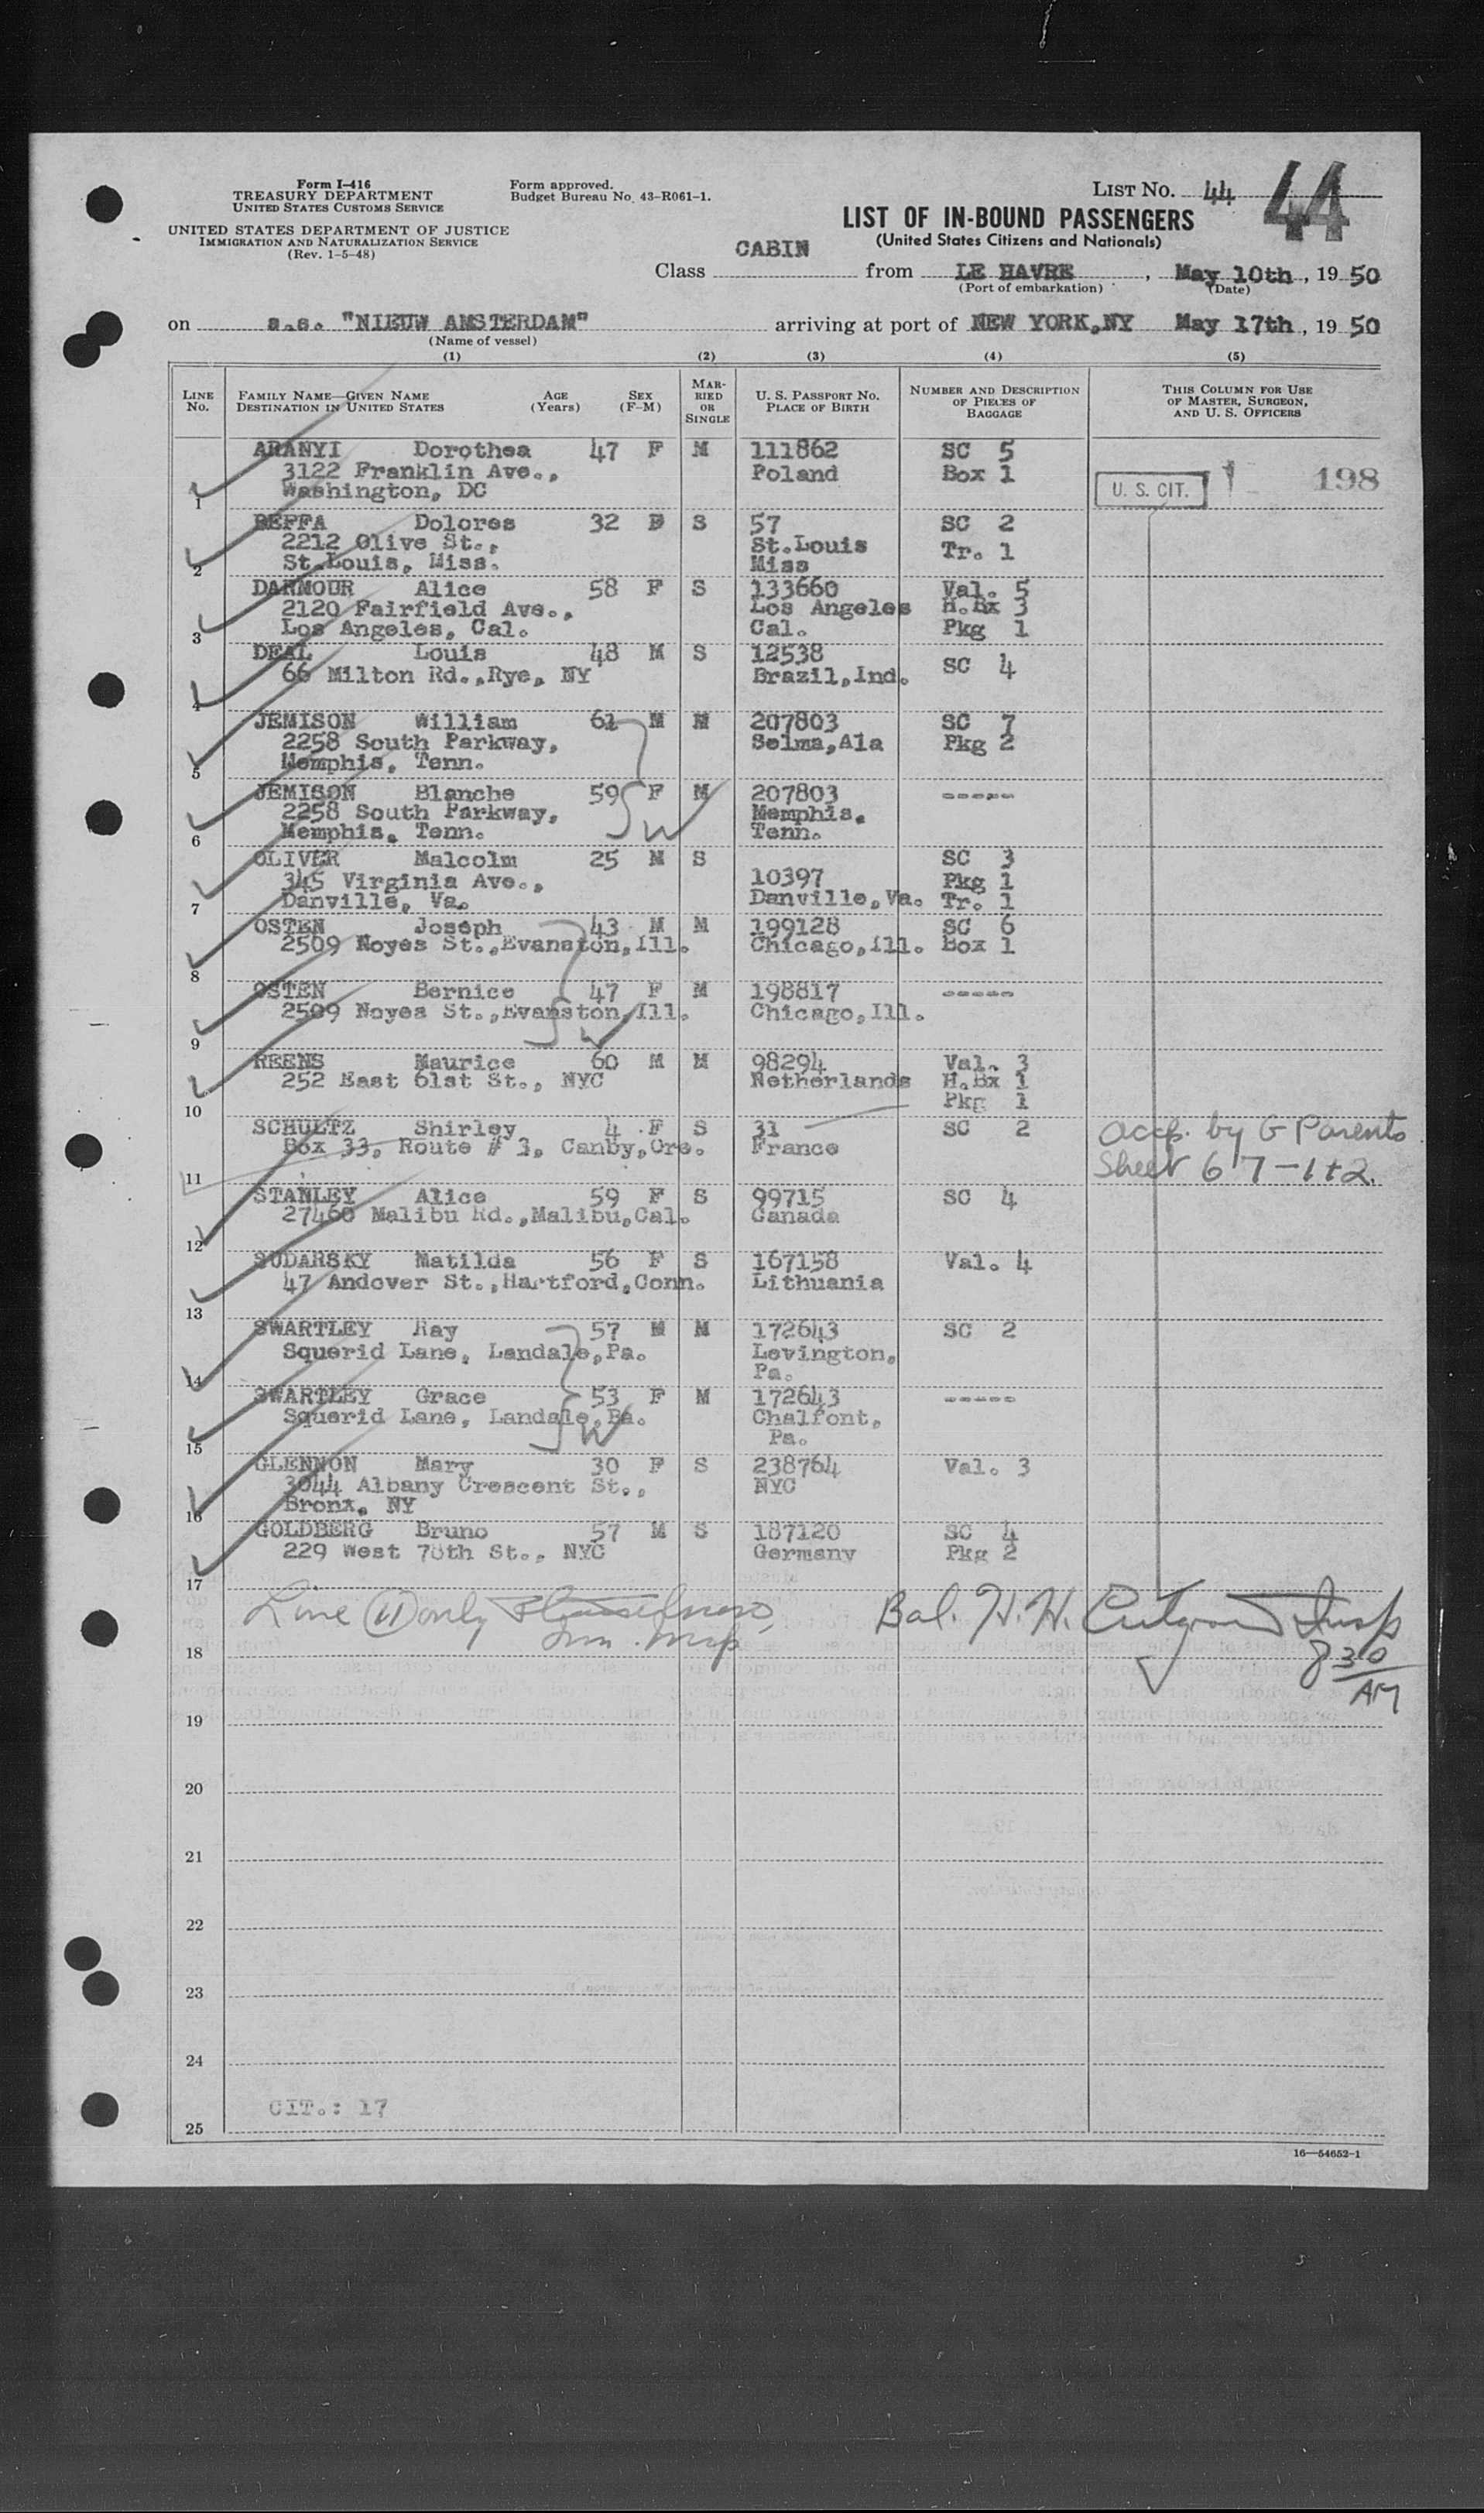 Form I-416
TREASURY DEPARTMENT
UNITED STATES CUSTOMS SERVICE
UNITED STATES DEPARTMENT OF JUSTICE
IMMIGRATION AND NATURALIZATION SERVICE
(Rev. 1-5-48)
Form approved.
Budget Bureau No. 43-R061-1.
LIST NO. 44 44
LIST OF IN-BOUND PASSENGERS
(United States Citizens and Nationals)
Class CABIN from LE HAVRE, May 10th, 1950
(Port of embarkation) (Date)
on s.s. "NIEUW AMSTERDAM" arriving at port of NEW YORK,NY May 17th, 1950
(Name of vessel)
(1) (2) (3) (4) (5)
LINE No. FAMILY NAME—GIVEN NAME DESTINATION IN UNITED STATES AGE (Years) SEX (F-M) MARRIED OR SINGLE U. S. PASSPORT NO. PLACE OF BIRTH NUMBER AND DESCRIPTION OF PIECES OF BAGGAGE THIS COLUMN FOR USE OF MASTER, SURGEON, AND U. S. OFFICERS
ARANYI Dorothea 47 F M 111862 SC 5
3122 Franklin Ave., Poland Box 1 U. S. CIT. 198
1 Washington, DC
BEFFA Dolores 32 F S 57 SC 2
2212 Olive St., St.Louis Tr. 1
2 St.Louis, Miss. Miss
DARMOUR Alice 58 F S 133660 Val. 5
2120 Fairfield Ave., Los Angeles H.Bx 3
3 Los Angeles, Cal. Cal. Pkg 1
DEAL Louis 48 M S 12538 SC 4
66 Milton Rd.,Rye, NY Brazil,Ind.
4
JEMISON William 61 M M 207803 SC 7
2258 South Parkway, Selma,Ala Pkg 2
5 Memphis, Tenn.
JEMISON Blanche 59 F M 207803 -----
2258 South Parkway, Memphis,
6 Memphis, Tenn. Tenn.
OLIVER Malcolm 25 M S SC 3
345 Virginia Ave., 10397 Pkg 1
7 Danville, Va. Danville, Va. Tr. 1
OSTEN Joseph 43 M M 199128 SC 6
2509 Noyes St.,Evanston,Ill. Chicago,Ill. Box 1
8
OSTEN Bernice 47 F M 198817 -----
2509 Noyes St.,Evanston,Ill. Chicago,Ill.
9
REENS Maurice 60 M M 98294 Val. 3
252 East 61st St., NYC Netherlands H.Bx 1
10 Pkg 1
SCHULTZ Shirley 4 F S 31 SC 2 accp. by G Parents
Box 33, Route # 3, Canby,Ore. France Sheet 67-1+2.
11
STANLEY Alice 59 F S 99715 SC 4
27460 Malibu Rd.,Malibu,Cal. Canada
12
SUDARSKY Matilda 56 F S 167158 Val. 4
47 Andover St.,Hartford,Conn. Lithuania
13
SWARTLEY Ray 57 M M 172643 SC 2
Squerid Lane, Landale,Pa. Levington,
14 Pa.
SWARTLEY Grace 53 F M 172643 -----
Squerid Lane, Landale,Pa. Chalfont,
15 Pa.
GLENNON Mary 30 F S 238764 Val. 3
3044 Albany Crescent St., NYC
16 Bronx, NY
GOLDBERG Bruno 57 M S 187120 SC 4
229 West 78th St., NYC Germany Pkg 2
17
Line (11) only Bal. H. H. Insp
Imm. Insp
18 8 30/AM
19
20
21
22
23
24
CIT.: 17
25
16—54652-1